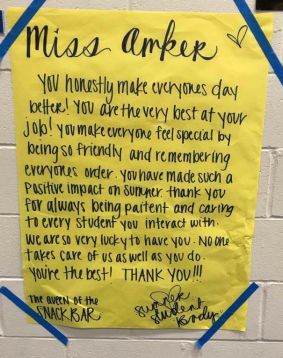 Miss Amker
You honestly make everyones day
better! You are the very best at your
job! you make everyone feel special by
being so friendly and remembering
everyones order. you have made such a
positive impact on sumner. thank you
for always being patient and caring
to every student you interact with.
we are so very lucky to have you. No one
takes care of us as well as you do.
you're the best! THANK YOU!!!
The queen of the
SNACK BAR
sumner
student
body